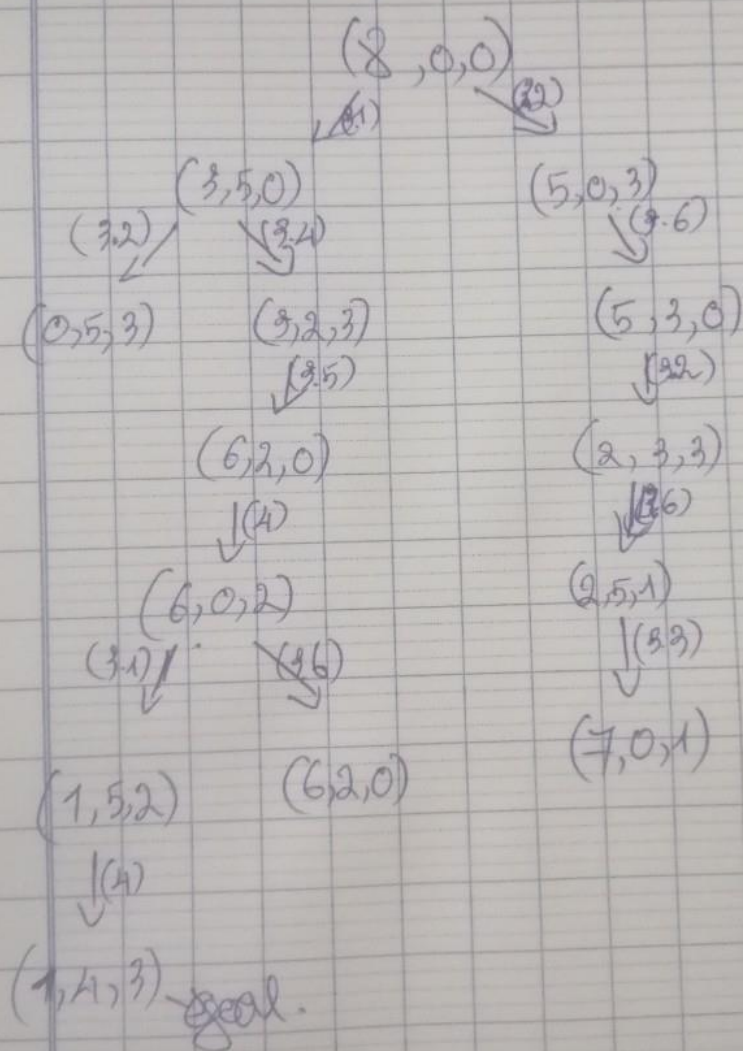 (8, 0, 0)
(3.1) (3.2)
(3, 5, 0) (5, 0, 3)
(3.2) (3.4) (3.6)
(0, 5, 3) (3, 2, 3) (5, 3, 0)
(3.5) (3.2)
(6, 2, 0) (2, 3, 3)
(4) (3.6)
(6, 0, 2) (2, 5, 1)
(3.1) (3.6) (3.3)
(1, 5, 2) (6, 2, 0) (7, 0, 1)
(4)
(1, 4, 3) goal.